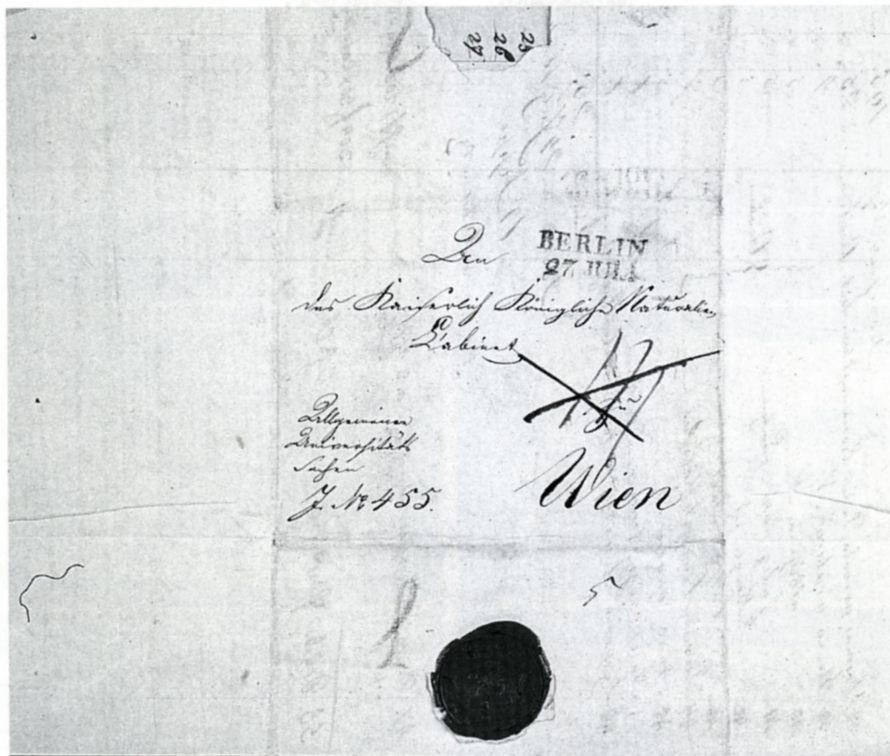 25
26
27
BERLIN
27 JULI
An
das Kaiserlich Königliche Naturalien
Cabinet
zu
Wien
Allgemeine
Universitäts
Sachen
J. No 455.
5